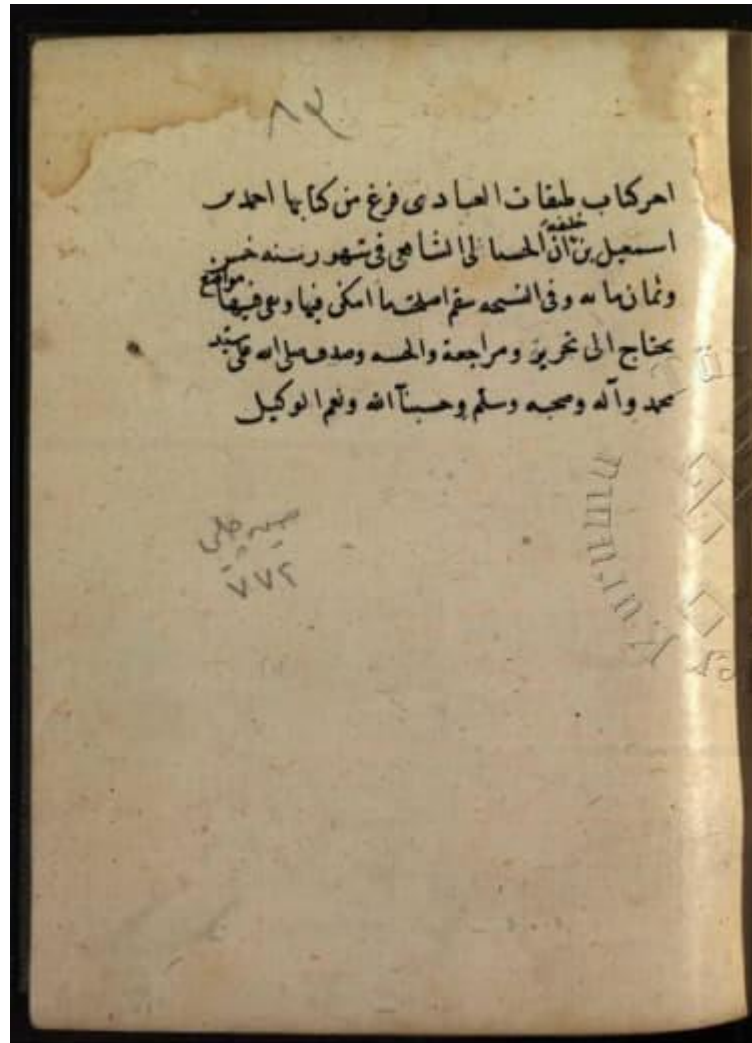 ٨٣
اخر كتاب طبقات العبادى فرغ من كتابها احمد بن
اسمعيل بن خليفة الحسبانى الشافعى فى شهور سنه خمس
وثمان مايه وفى النسخه سقم اصلحت ما امكن فيها وبقى فيها مواضع
يحتاج الى تحرير ومراجعة والحمد لله وحده صلى الله على سيد
محمد وآله وصحبه وسلم وحسبنا الله ونعم الوكيل
حلبى
٧٧٢